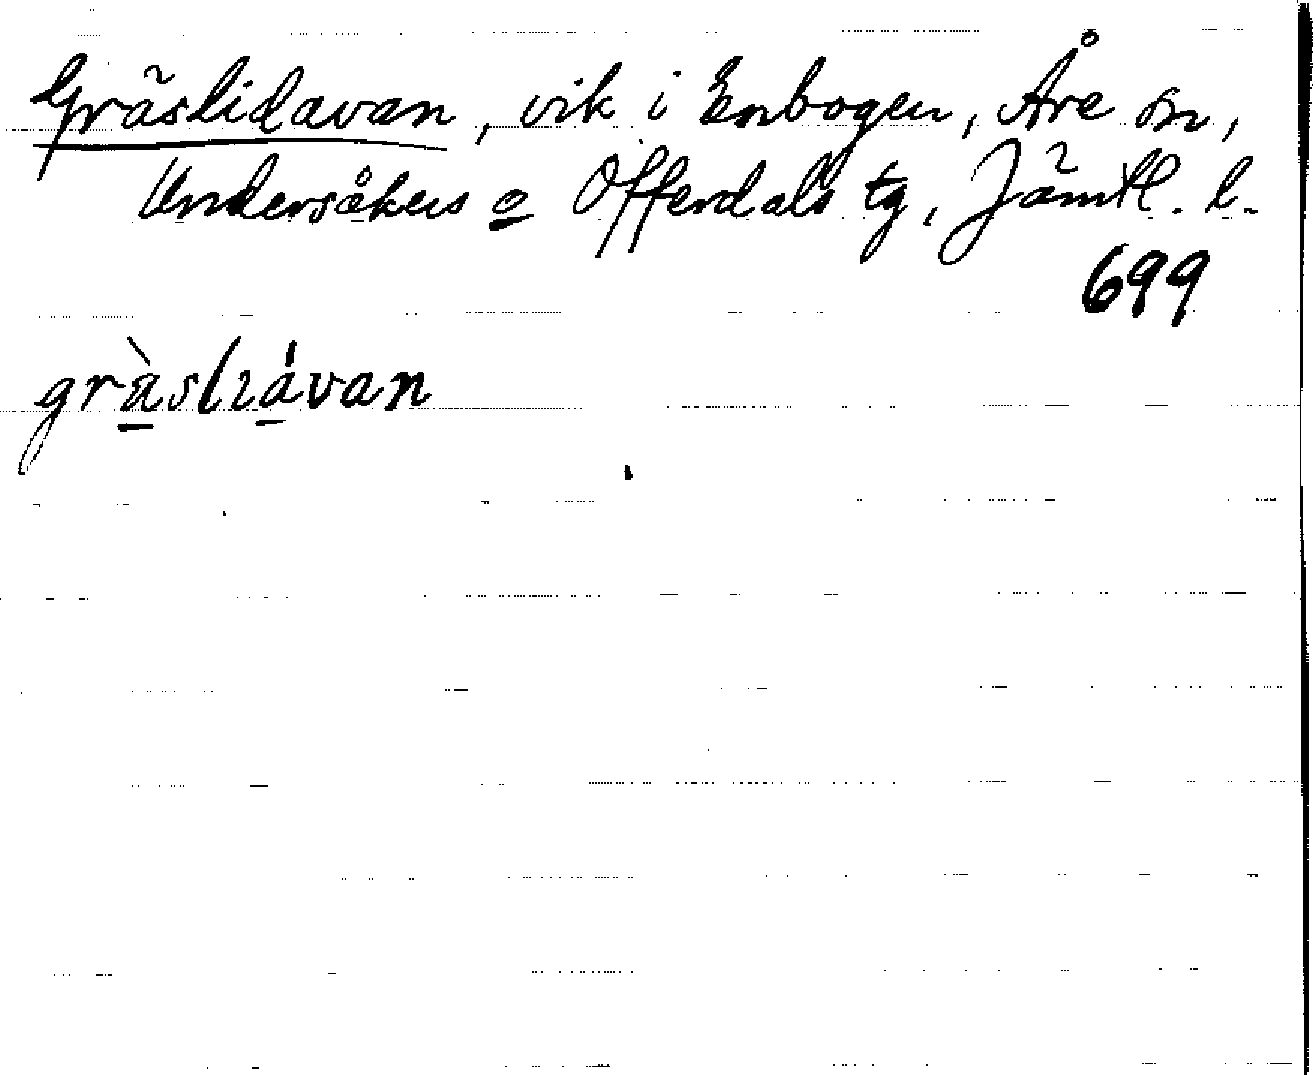 Gräslidavan, vik i Enbogen, Åre sn,
Undersåkers o Offerdals tg, Jämtl. l.
699
gràslıávan